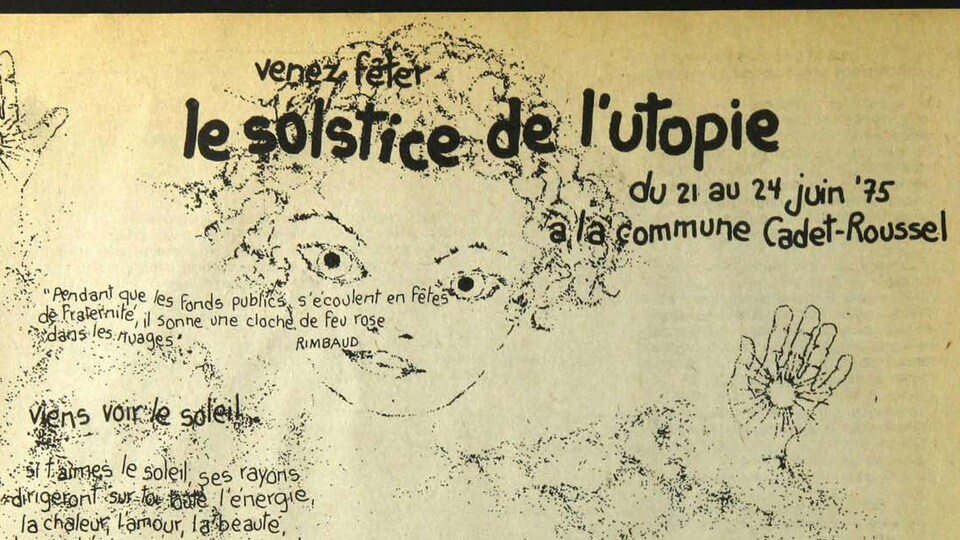 venez fêter
le solstice de l'utopie
du 21 au 24 juin '75
à la commune Cadet-Roussel
"Pendant que les fonds publics, s'écoulent en fêtes
de fraternité, il sonne une cloche de feu rose
dans les nuages"
RIMBAUD
viens voir le soleil...
si t'aimes le soleil, ses rayons
dirigeront sur toi toute l'énergie,
la chaleur, l'amour, la beauté,